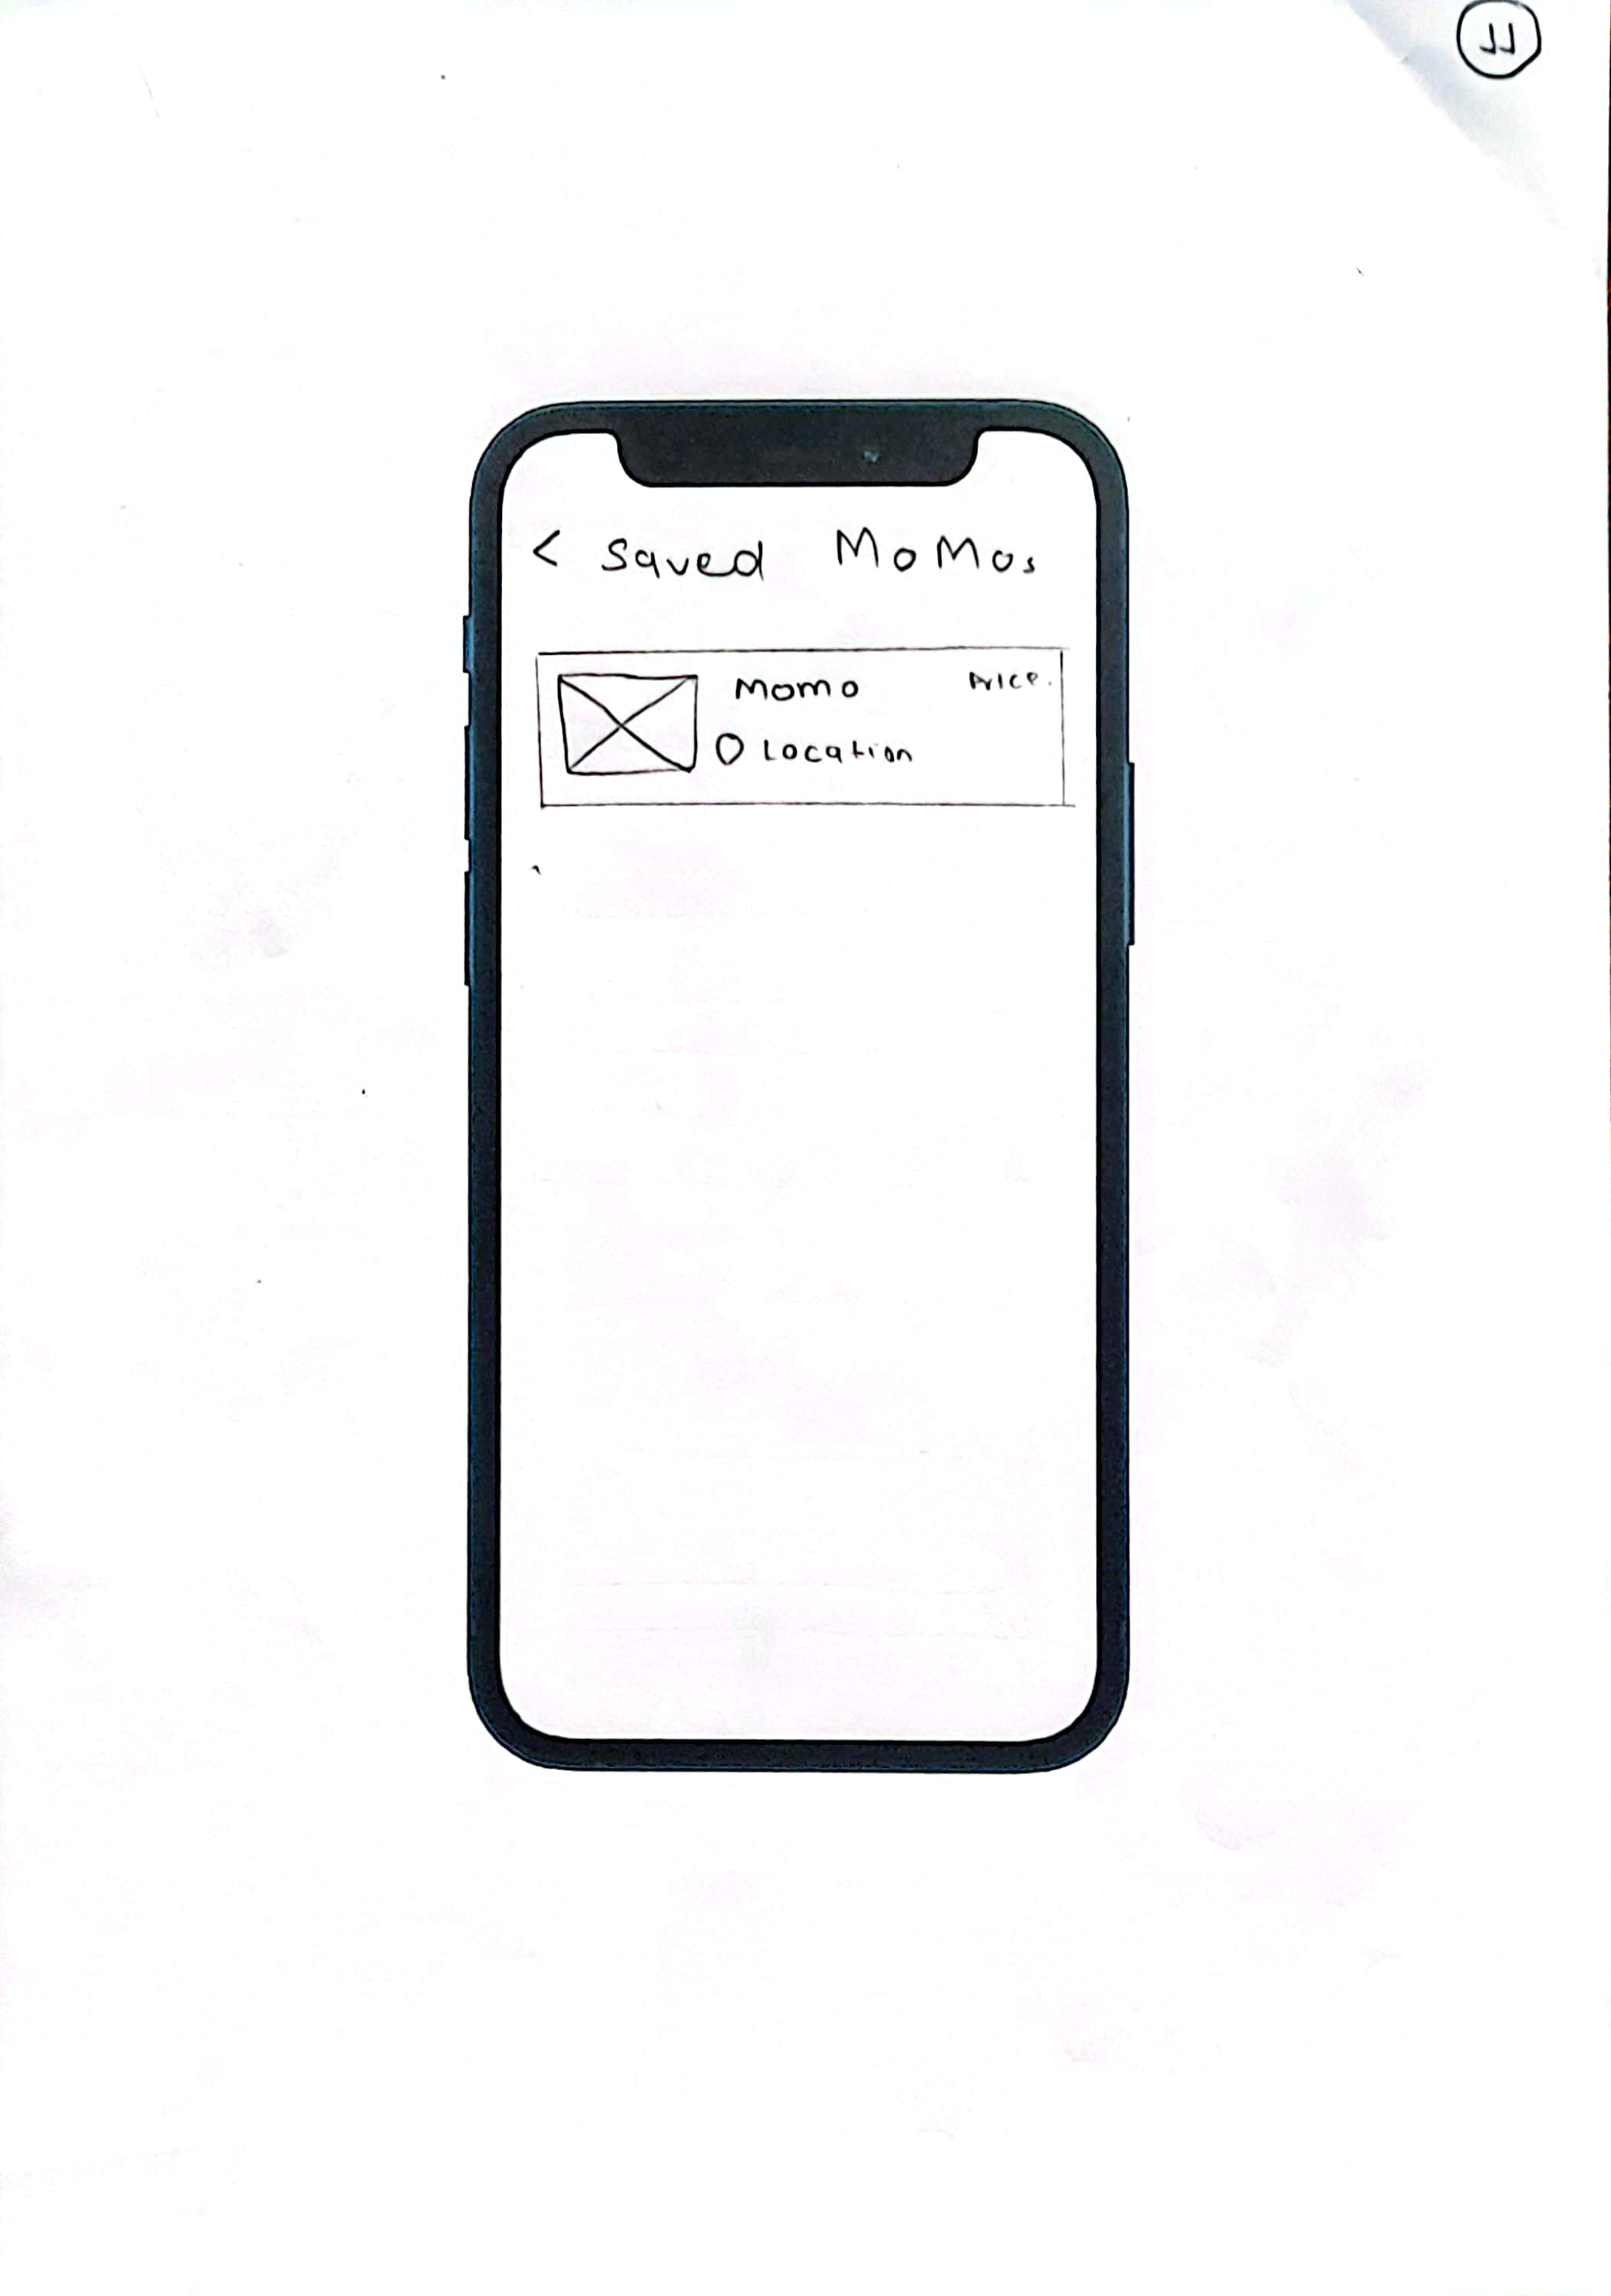 11
< Saved MoMos
Momo Price.
Location